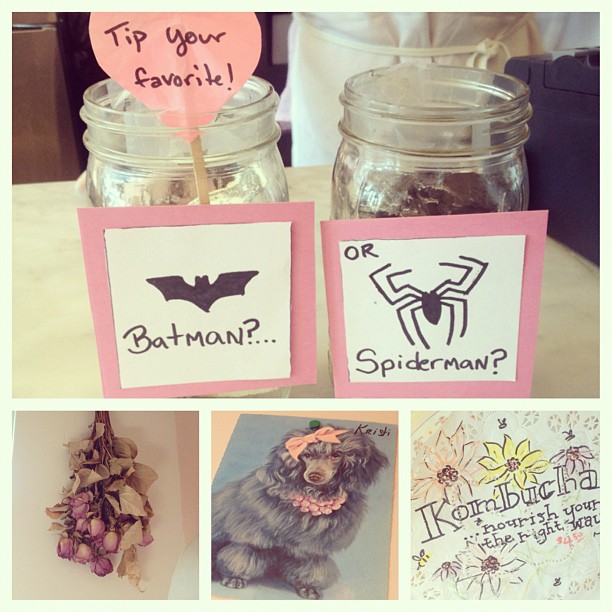 Tip your
favorite!
Batman?...
OR
Spiderman?
Kristi
Kombucha
nourish your
the right way